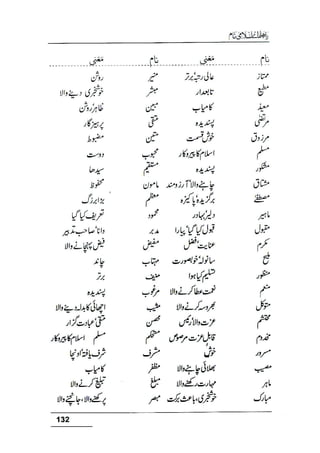 نام معنی نام معنی
ممتاز عالی رتبہ برتر منیر روشن
مطیع تابعدار مبشر خوشخبری دینے والا
معیذ کامیاب مبین ظاہر، روشن
مرتضیٰ پسندیدہ متقی پرہیزگار
مرزوق خوش قسمت متین مضبوط
مسلم اسلام کا پیروکار محبوب دوست
مشکور پسندیدہ مستقیم سیدھا
مشتاق چاہنے والا آرزومند مامون محفوظ
مصطفےٰ برگزیدہ پاکیزہ معظم بڑا بزرگ
ماہیر دلیر بہادر محمود تعریف کیا گیا
مقبول قبول کیا گیا پیارا مدبر دانا صاحب تدبیر
مکرم عنایت فضل مفیض فیض پہنچانے والا
ملیح سانولہ خوبصورت مہتاب چاند
منظور تسلیم کیا ہوا منیف برتر
منعم نعمت عطا کرنے والا مرغوب پسندیدہ
متوکل بھروسہ کرنے والا مثیب اچھائی کا بدلہ دینے والا
محتشم عزت والا رئیس محسن متقی عبادت گزار
مخدوم قابل عزت مسلم اسلام کا پیروکار
مسرور خوش مشرف شرف یافتہ اونچا
مصیب بھلائی چاہنے والا مظفر کامیاب
ماہر مہارت رکھنے والا مبلغ تبلیغ کرنے والا
مبارک خوشخبری، باعث برکت مبصر پرکھنے والا، جانچنے والا
132